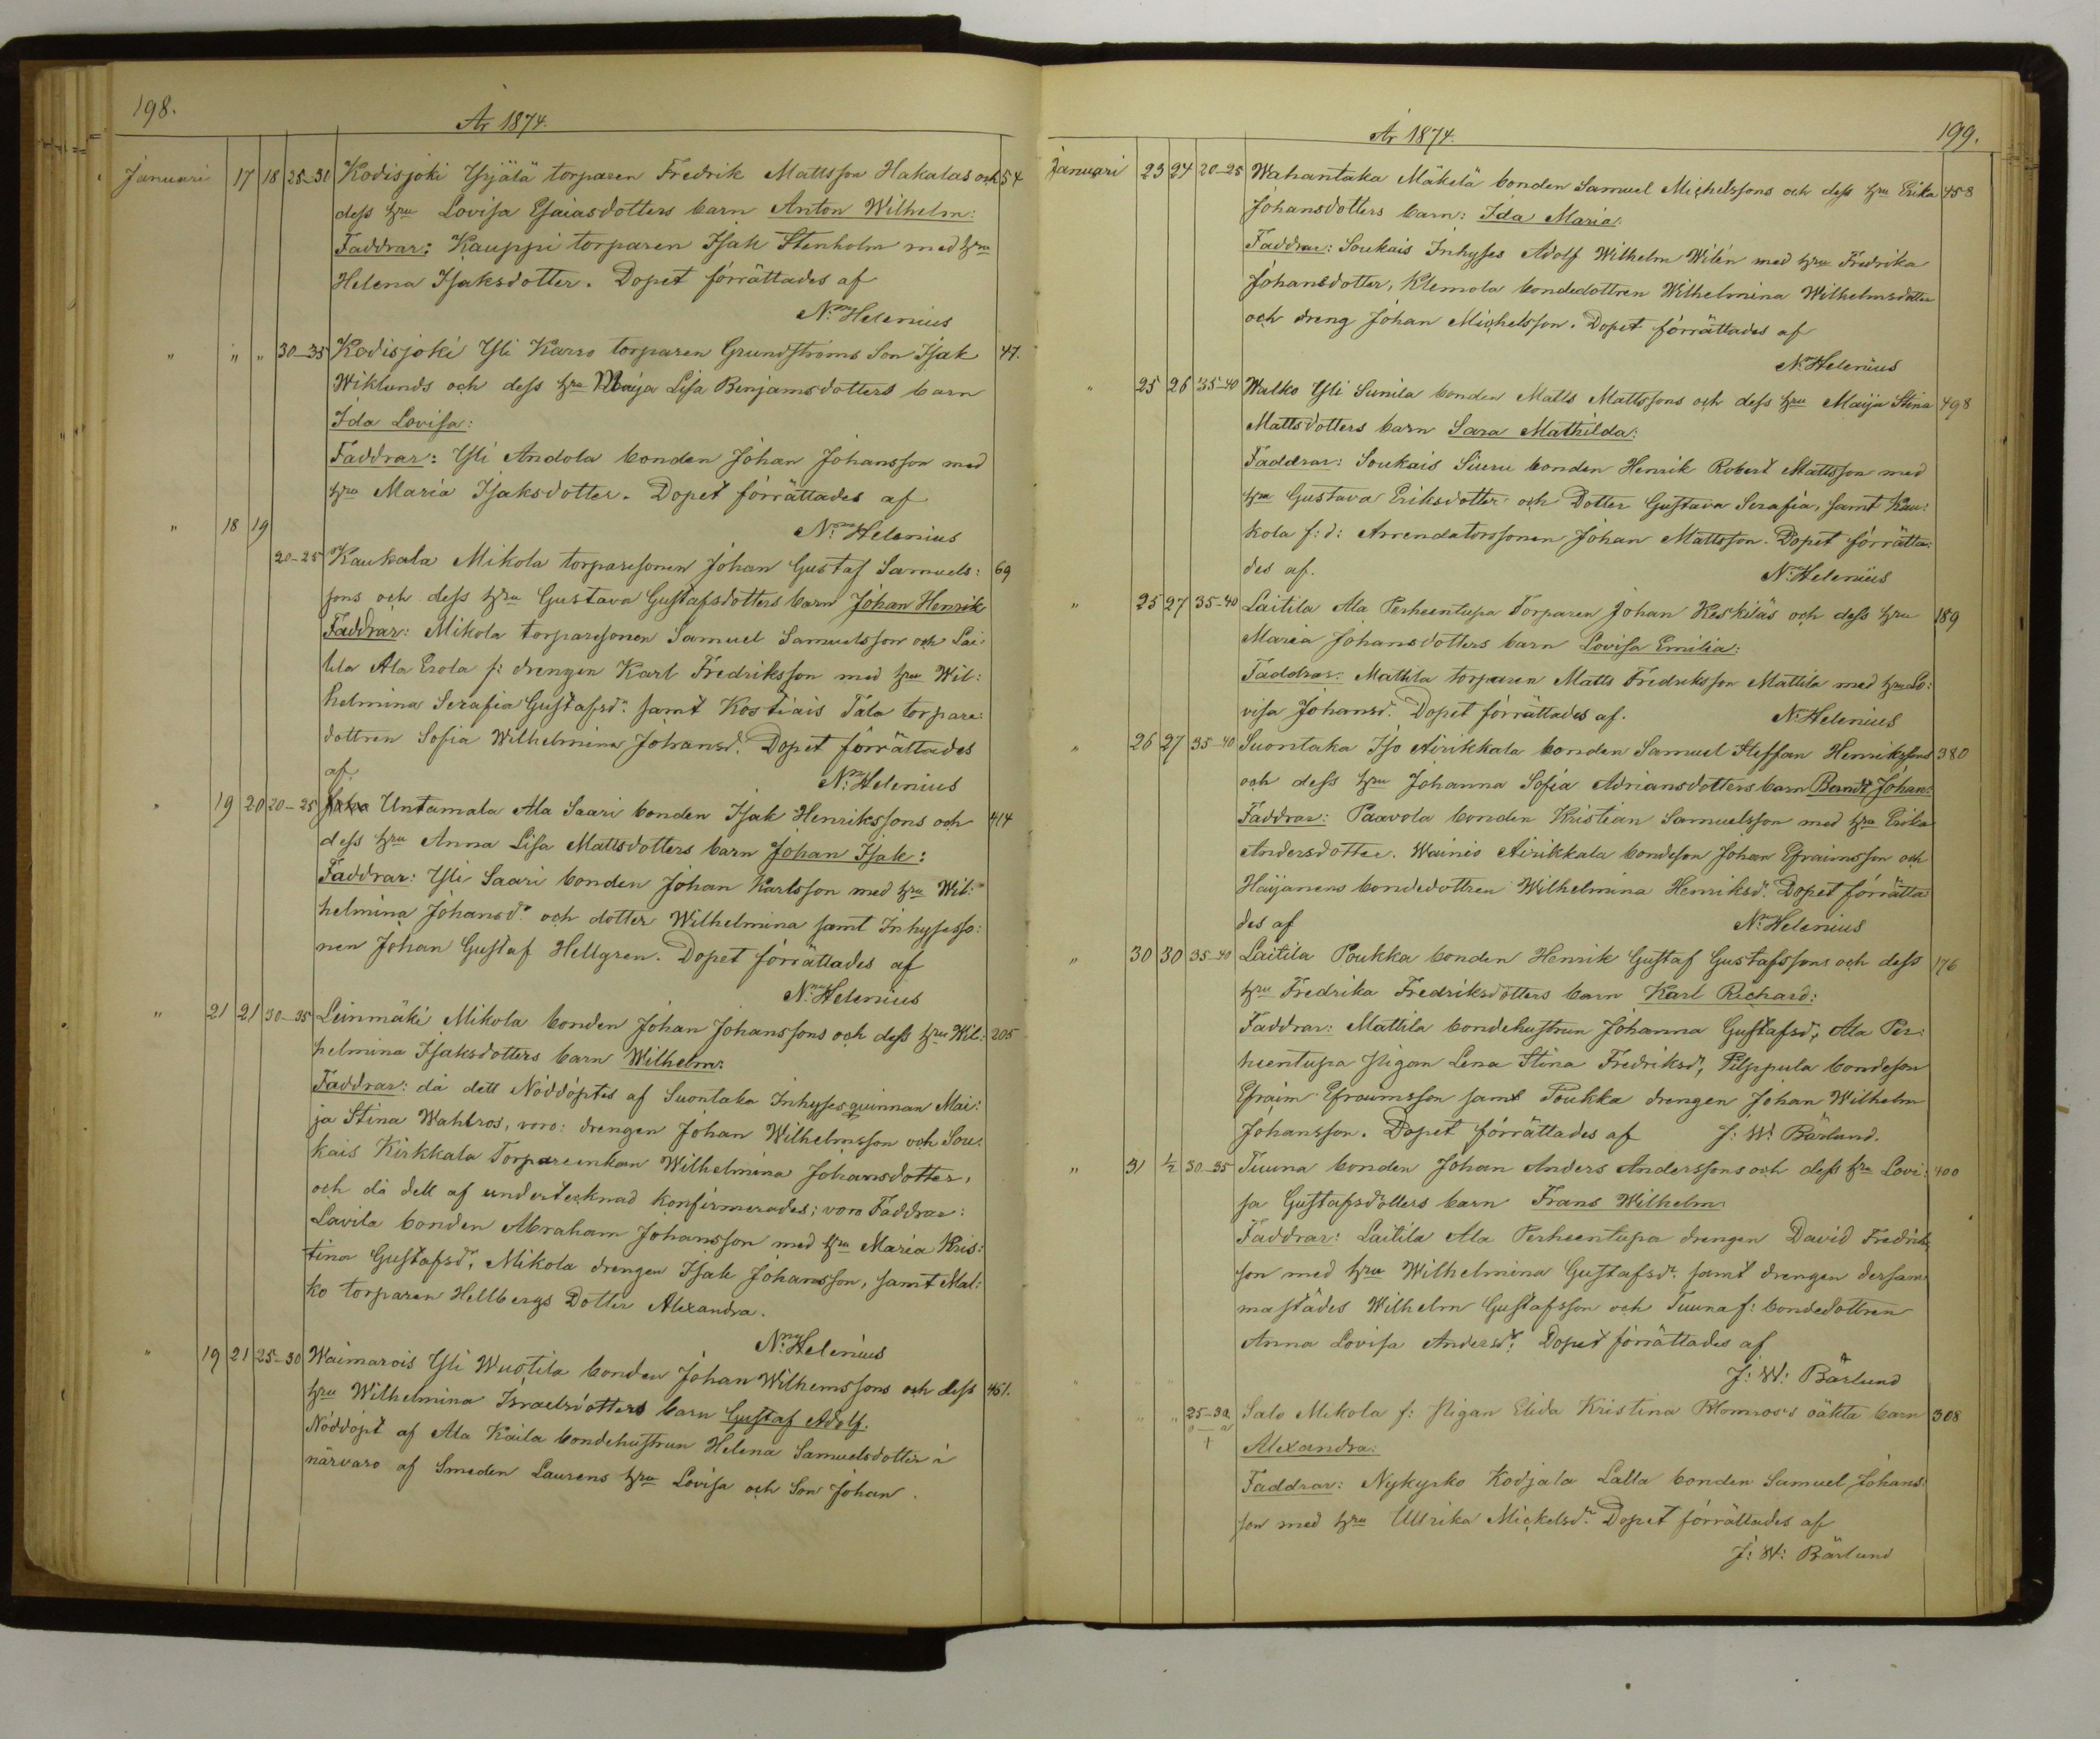 198.
År 1874.
Januari 17 18 25-31 Kodisjoki Yrjälä torparen Fredrik Mattsson Hakalas och 54
dess hru Lovisa Esaiasdotters barn Anton Wilhelm:
Faddrar: Kauppi torparen Isak Stenholm med hru
Helena Isaksdotter. Dopet förrättades af
N: Helenius
" " " 30-35 Kodisjoki Yli Karro torparen Grundströms Son Isak 47.
Wiklunds och dess hru Maija Lisa Benjamsdotters barn
Ida Lovisa:
Faddrar: Yli Andola bonden Johan Johansson med
hru Maria Isaksdotter. Dopet förrättades af
" 18 19 N: Helenius
20-25 Kaukala Mikola torparesonen Johan Gustaf Samuels: 69
sons och dess hru Gustava Gustafsdotters barn Johan Henrik
Faddrar: Mikola torparesonen Samuel Samuelsson och Lai:
tila Ala Erola f: drengen Karl Fredriksson med hru Wil:
helmina Serafia Gustafsd: samt Kostiais Tala torpare
dottren Sofia Wilhelmina Johansd: Dopet förrättades
af N: Helenius
" 19 20 20-25 Untamala Ala Saari bonden Isak Henrikssons och 414
dess hru Anna Lisa Mattsdotters barn Johan Isak:
Faddrar: Yli Saari bonden Johan Karlsson med hru Wil:
helmina Johansd: och dotter Wilhelmina samt Inhysesso:
nen Johan Gustaf Hellgren. Dopet förrättades af
N: Helenius
" 21 21 30-35 Leinmäki Mikola bonden Johan Johanssons och dess hru Wil: 205
helmina Isaksdotters barn Wilhelm:
Faddrar: då dett Nöddöptes af Suontaka Inhysesquinnan Mai:
ja Stina Wahlros, voro: drengen Johan Wilhelmsson och Sou:
kais Kirkkala Torpareenkan Wilhelmina Johansdotter,
och då dett af undertecknad konfirmerades; voro Faddrar:
Lavila bonden Abraham Johansson med hru Maria Kris:
tina Gustafsd:, Mikola drengen Isak Johansson, samt Mal:
ko torparen Hellbergs Dotter Alexandra.
N: Helenius
" 19 21 25-30 Waimarois Yli Wuotila bonden Johan Wilhemssons och dess 451.
hru Wilhelmina Israelsdotters barn Gustaf Adolf.
Nöddöpt af Ala Kaila bondehustrun Helena Samuelsdotter i
närvaro af Smeden Laurens hru Lovisa och Son Johan.
År 1874. 199.
Januari 23 24 20-25 Wahantaka Mäkelä bonden Samuel Michelssons och dess hru Erika 458
Johansdotters barn: Ida Maria:
Faddrar: Soukais Inhyses Adolf Wilhelm Wilén med hru Fredrika
Johansdotter, Klemola bondedottren Wilhelmina Wilhelmsdotter
och dreng Johan Michelsson. Dopet förrättades af
N: Helenius
" 25 26 35-40 Walko Yli Sunila bonden Matts Mattssons och dess hru Maija Stina 498
Mattsdotters barn Sara Mathilda:
Faddrar: Soukais Siuru bonden Henrik Robert Mattsson med
hru Gustava Eriksdotter och Dotter Gustava Serafia, samt Kau:
kola f: d: Arrendatorssonen Johan Mattsson. Dopet förrätta:
des af. N: Helenius
" 25 27 35-40 Laitila Ala Perheentupa Torparen Johan Keskiläs och dess hru 189
Maria Johansdotters barn Lovisa Emilia:
Faddrar: Mattila torparen Matts Fredriksson Mattila med hru Lo:
visa Johansd: Dopet förrättades af. N: Helenius
" 26 27 35-40 Suontaka Iso Airikkala bonden Samuel Steffan Henrikssons 380
och dess hru Johanna Sofia Adriansdotters barn Berndt Johan:
Faddrar: Paavola bonden Kristian Samuelsson med hru Erika
Andersdotter. Wainio Airikkala bondeson Johan Efraimsson och
Haijanens bondedottren Wilhelmina Henriksd: Dopet förrätta:
des af N: Helenius
" 30 30 35-40 Laitila Poukka bonden Henrik Gustaf Gustafssons och dess 176
hru Fredrika Fredriksdotters barn Karl Richard:
Faddrar: Mattila bondehustrun Johanna Gustafsd:, Ala Per:
heentupa Pigan Lena Stina Fredriksd:, Pilppula bondeson
Efraim Efraimsson samt Poukka drengen Johan Wilhelm
Johansson. Dopet förrättades af J: W: Bärlund.
" 31 ½ 30-35 Tuuna bonden Johan Anders Anderssons och dess hru Lovi: 400
sa Gustafsdotters barn Frans Wilhelm:
Faddrar: Laitila Ala Perheentupa drengen David Fredriks
son med hru Wilhelmina Gustafsd: samt drengen dersam
mastädes Wilhelm Gustafsson och Tuuna f: bondedottren
Anna Lovisa Andersd: Dopet förrättades af
J: W: Bärlund
" " " 25-30 Salo Mikola f: Pigan Elida Kristina Blomros's oäkta barn 308
+ Alexandra:
Faddrar: Nykyrko Kodjala Lalla bonden Samuel Johans:
son med hru Ullrika Mickelsd: Dopet förrättades af
J: W: Bärlund